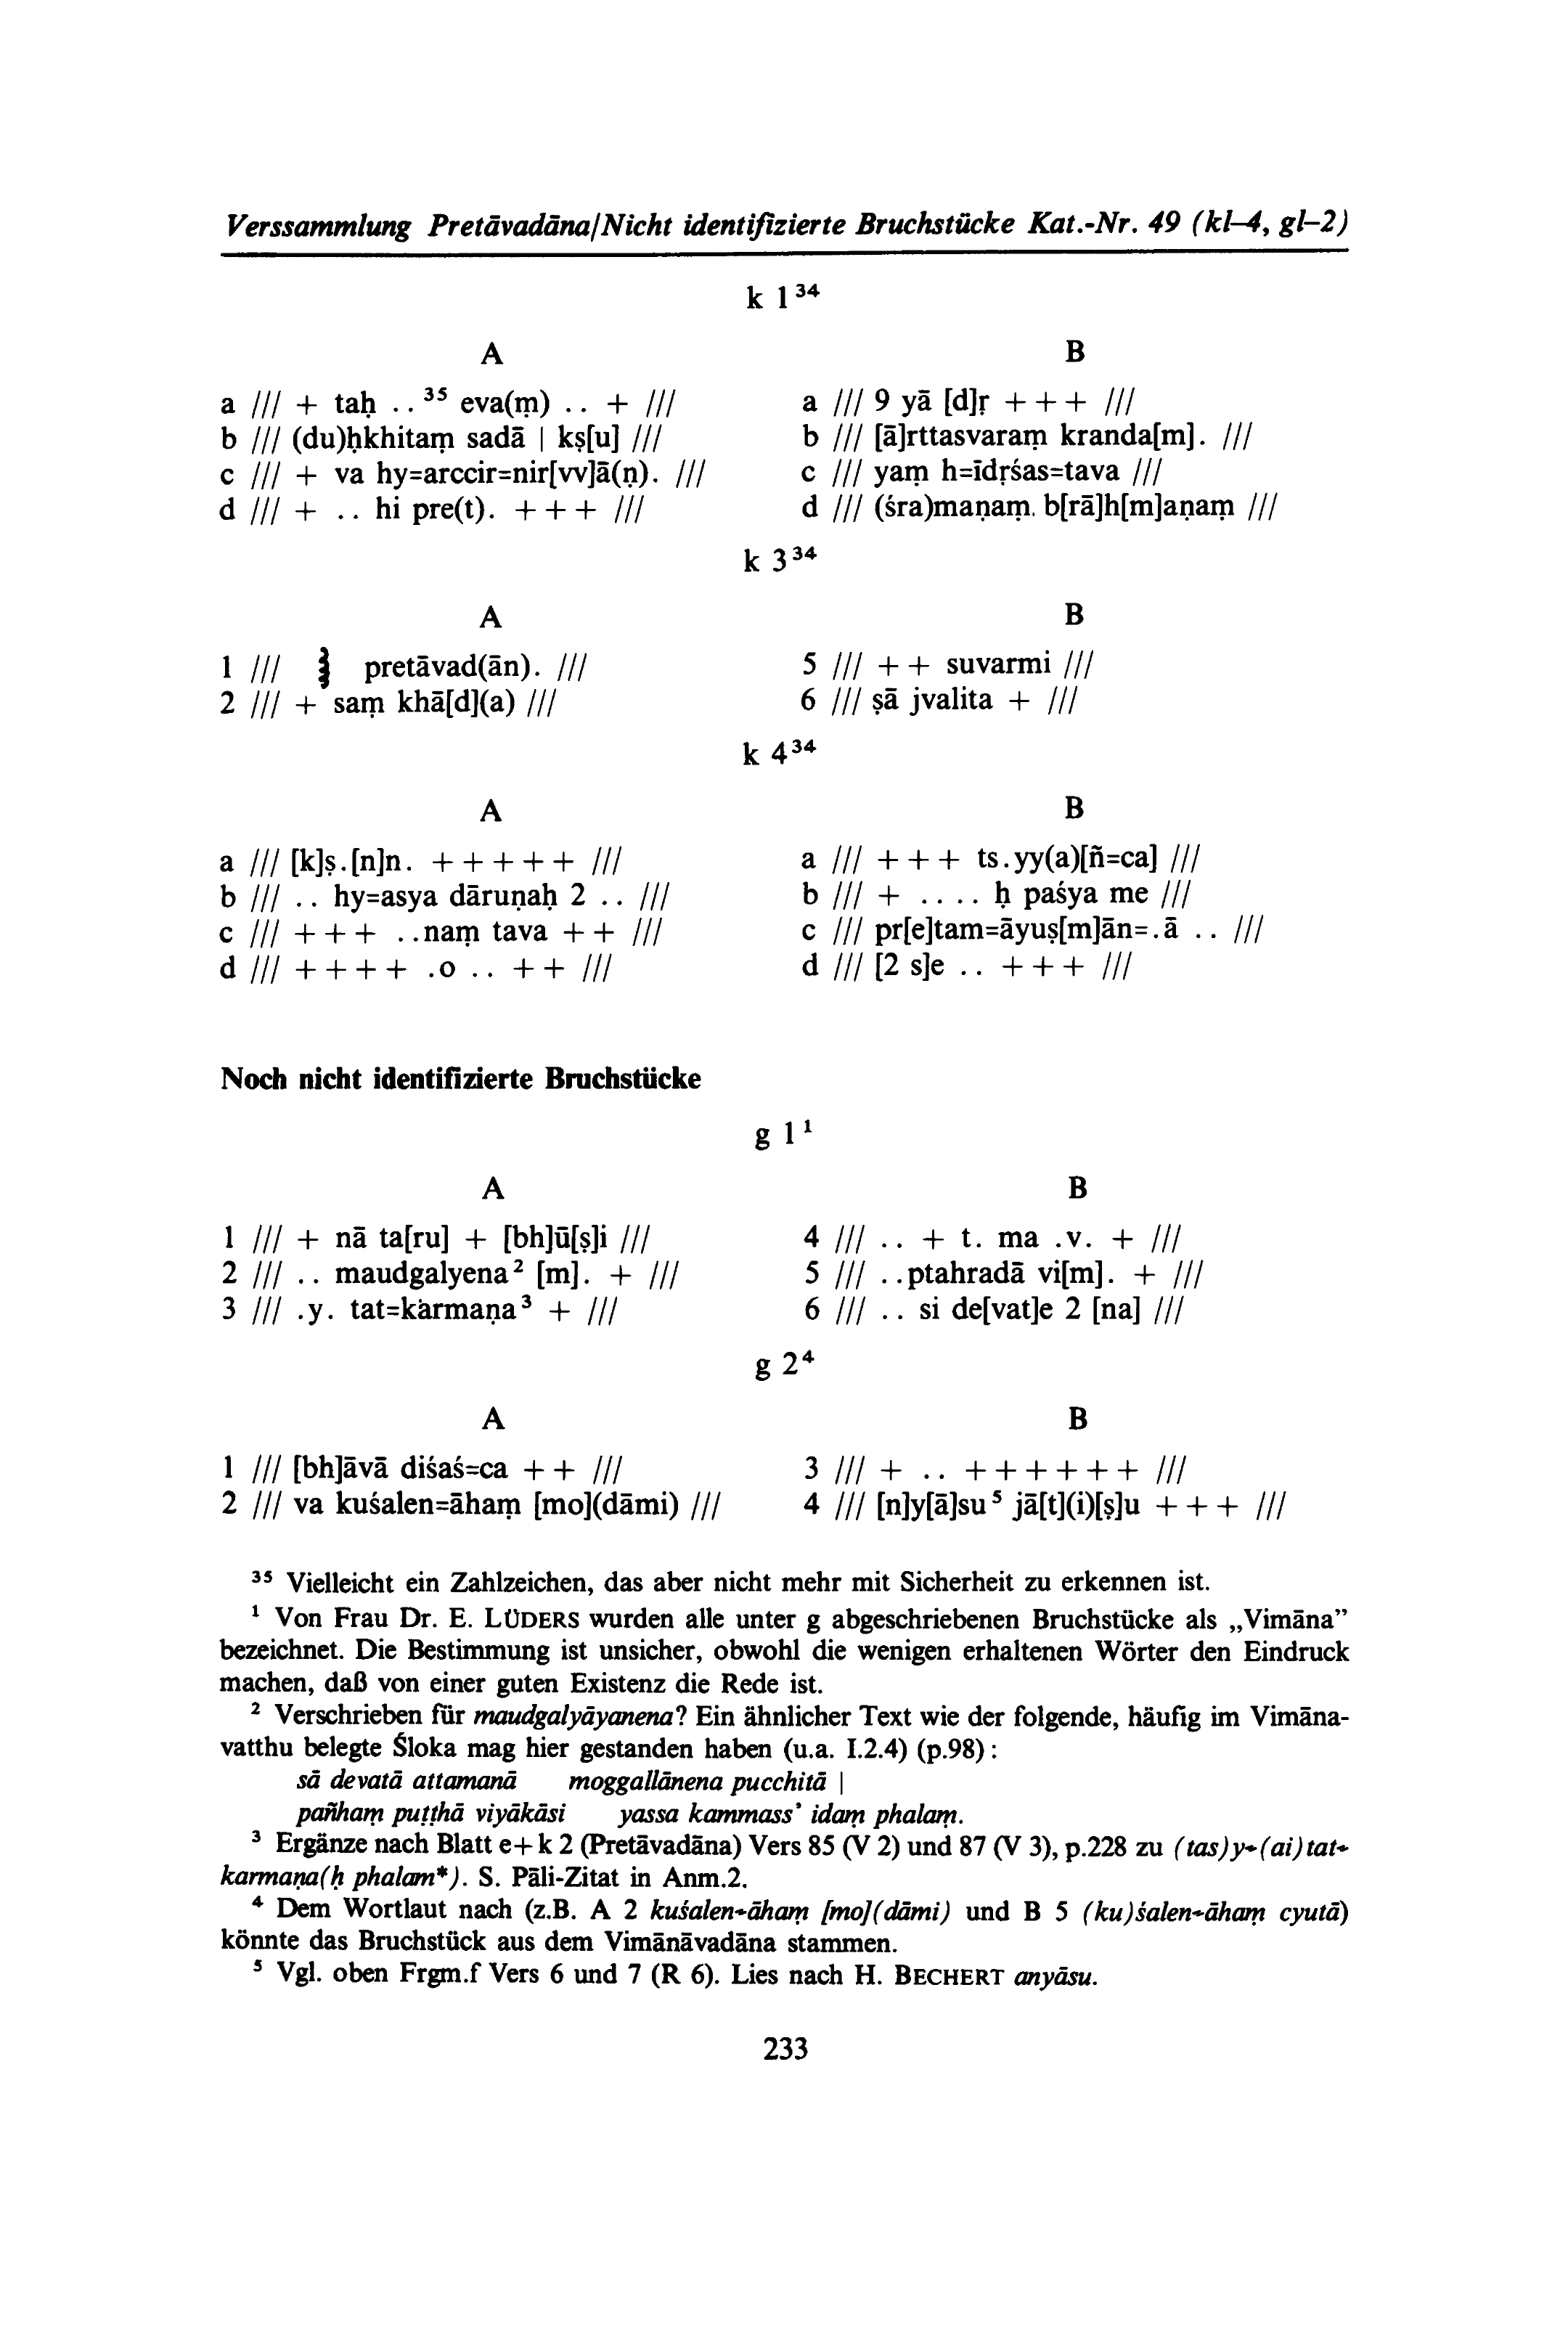 Verssammlung Pretāvadāna/Nicht identifizierte Bruchstücke Kat.-Nr. 49 (kl–4, gl–2)
k 1³⁴
A
a /// + taḥ ..³⁵ eva(ṃ) .. + ///
b /// (du)ḥkhitaṃ sadā | kṣ[u] ///
c /// + va hy=arccir=nir[vv]ā(ṇ). ///
d /// + .. hi pre(t). + + + ///
B
a /// 9 yā [d]ṛ + + + ///
b /// [ā]rttasvaraṃ kranda[m]. ///
c /// yaṃ h=īdṛśas=tava ///
d /// (śra)maṇaṃ. b[rā]h[m]aṇaṃ ///
k 3³⁴
A
1 /// pretāvad(ān). ///
2 /// + saṃ khā[d](a) ///
B
5 /// + + suvarmi ///
6 /// ṣā jvalita + ///
k 4³⁴
A
a /// [k]ṣ.[n]n. + + + + + ///
b /// .. hy=asya dāruṇaḥ 2 .. ///
c /// + + + ..naṃ tava + + ///
d /// + + + + .o .. + + ///
B
a /// + + + ts.yy(a)[ñ=ca] ///
b /// + .... ḥ paśya me ///
c /// pr[e]tam=āyuṣ[m]ān=.ā .. ///
d /// [2 s]e .. + + + ///
Noch nicht identifizierte Bruchstücke
g 1¹
A
1 /// + nā ta[ru] + [bh]ū[ṣ]i ///
2 /// .. maudgalyena² [m]. + ///
3 /// .y. tat=karmaṇa³ + ///
B
4 /// .. + t. ma .v. + ///
5 /// ..ptahradā vi[m]. + ///
6 /// .. si de[vat]e 2 [na] ///
g 2⁴
A
1 /// [bh]āvā diśaś=ca + + ///
2 /// va kuśalen=āhaṃ [mo](dāmi) ///
B
3 /// + .. + + + + + + ///
4 /// [n]y[ā]su⁵ jā[t](i)[ṣ]u + + + ///
³⁵ Vielleicht ein Zahlzeichen, das aber nicht mehr mit Sicherheit zu erkennen ist.
¹ Von Frau Dr. E. LÜDERS wurden alle unter g abgeschriebenen Bruchstücke als „Vimāna”
bezeichnet. Die Bestimmung ist unsicher, obwohl die wenigen erhaltenen Wörter den Eindruck
machen, daß von einer guten Existenz die Rede ist.
² Verschrieben für maudgalyāyanena? Ein ähnlicher Text wie der folgende, häufig im Vimāna-
vatthu belegte Śloka mag hier gestanden haben (u.a. I.2.4) (p.98):
sā devatā attamanā moggallānena pucchitā |
pañhaṃ puṭṭhā viyākāsi yassa kammass’ idaṃ phalaṃ.
³ Ergänze nach Blatt e+k 2 (Pretāvadāna) Vers 85 (V 2) und 87 (V 3), p.228 zu (tas)y=(ai)tat=
karmaṇa(ḥ phalam*). S. Pāli-Zitat in Anm.2.
⁴ Dem Wortlaut nach (z.B. A 2 kuśalen=āhaṃ [mo](dāmi) und B 5 (ku)śalen=āhaṃ cyutā)
könnte das Bruchstück aus dem Vimānāvadāna stammen.
⁵ Vgl. oben Frgm.f Vers 6 und 7 (R 6). Lies nach H. BECHERT anyāsu.
233